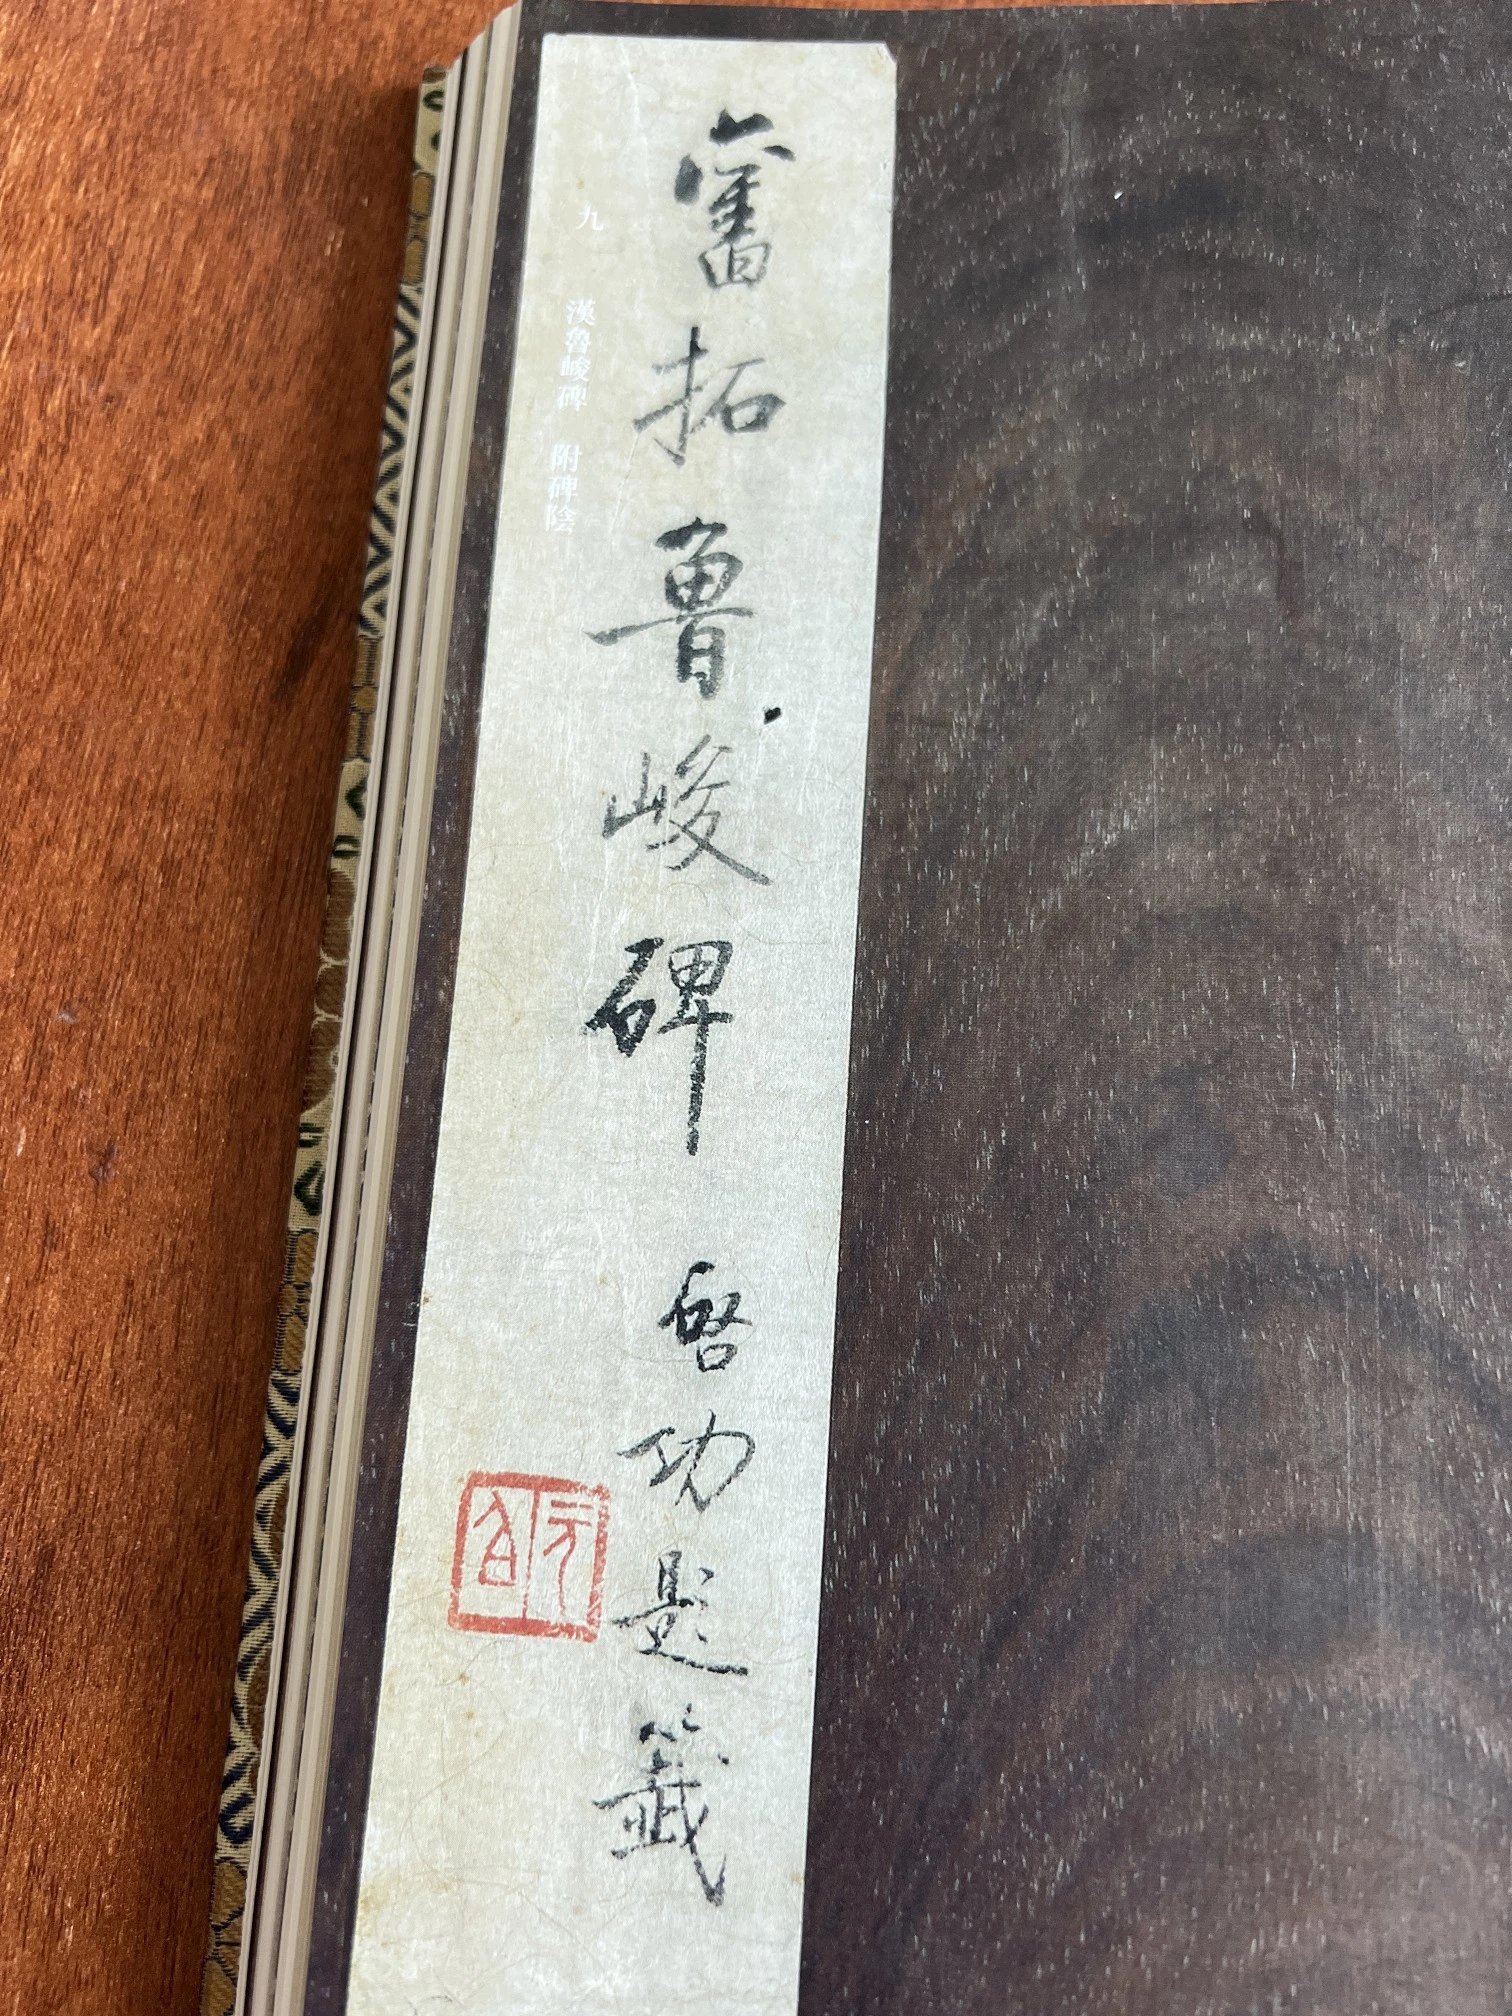 舊拓魯峻碑 啓功題籤
元白
九 漢魯峻碑 附碑陰